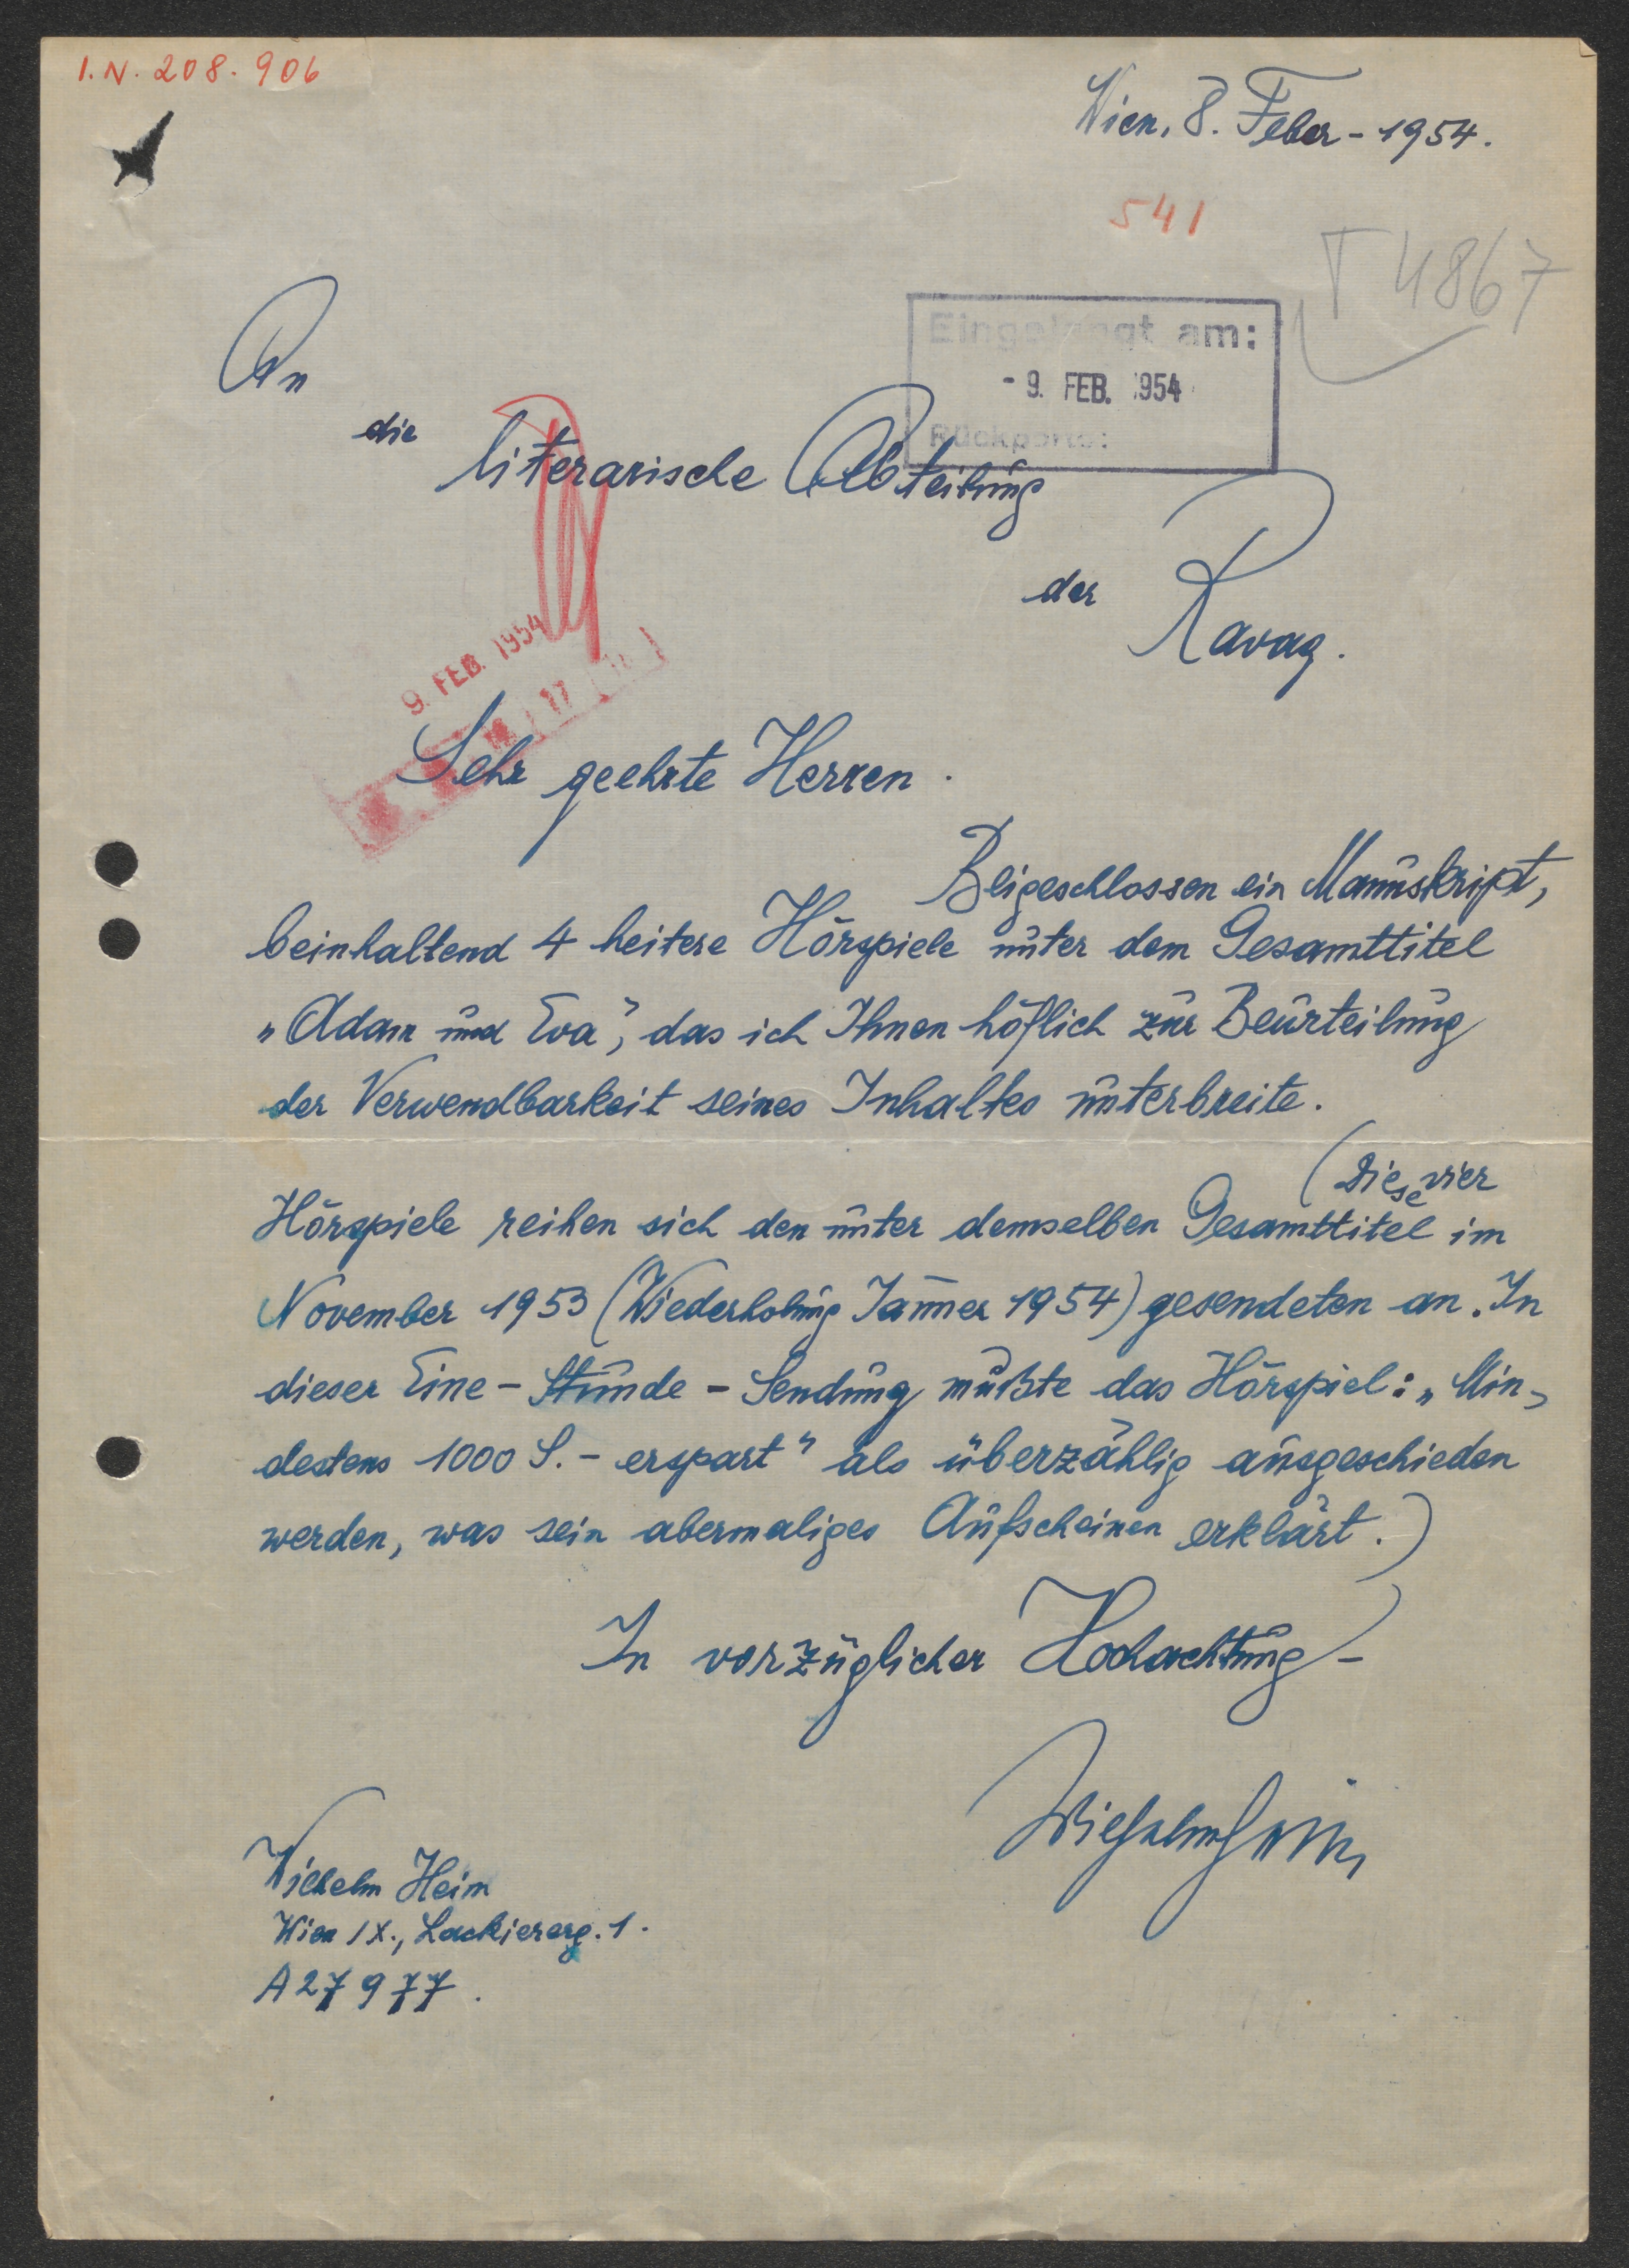 I.N. 208.906
Wien, 8. Feber - 1954.
541
T 4867
Eingelangt am:
- 9. FEB. 1954
Rückporto:
An
die
literarische Abteilung
der
Ravag.
9. FEB. 1954
17
Sehr geehrte Herren.
Beigeschlossen ein Manuskript,
beinhaltend 4 heitere Hörspiele unter dem Gesamttitel
„Adam und Eva“, das ich Ihnen höflich zur Beurteilung
der Verwendbarkeit seines Inhaltes unterbreite.
(Diese vier
Hörspiele reihen sich den unter demselben Gesamttitel im
November 1953 (Wiederholung Jänner 1954) gesendeten an. In
dieser Eine - Stunde - Sendung mußte das Hörspiel: „Min-
destens 1000 S. - erspart“ als überzählig ausgeschieden
werden, was sein abermaliges Aufscheinen erklärt.)
In vorzüglicher Hochachtung -
Wilhelm Heim
Wilhelm Heim
Wien IX., Lackiererg. 1.
A27977.